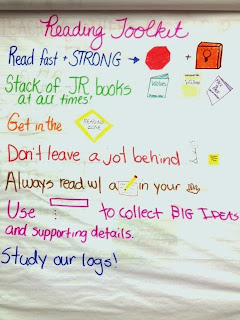 Reading Toolkit
Read fast + STRONG → +
Stack of JR books
at all times!
Get in the READING ZONE
Don't leave a jot behind
Always read w/ a in your
Use to collect BIG IDEAS
and supporting details.
Study our logs!